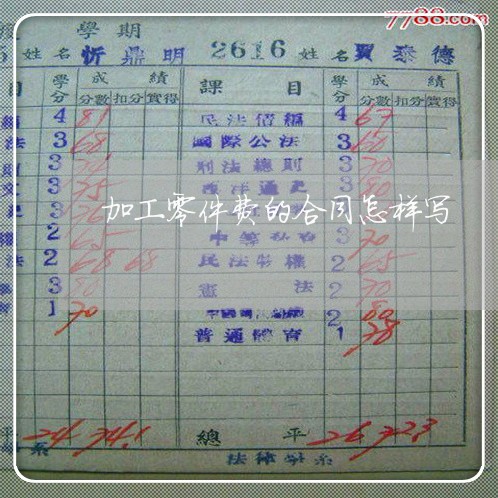 7788.com
學期
姓名 忻鼎明 2616 姓名 賈泰德
目 學分 成績 課目 學分 成績
分數 扣分 實得 分數 扣分 實得
4 81 民法債編 4 67
法 3 68 國際公法 3 60
3 刑法總則 3 70
3 75 西洋通史 3 80
加工零件费的合同怎样写
2 65 3 70
法 2 68 68 民法物權 2 65
3 80 憲法 2 70
1 70 2 80
普通體育 1 78
平 24 74.1 總平 26 72.3
系 法律學系